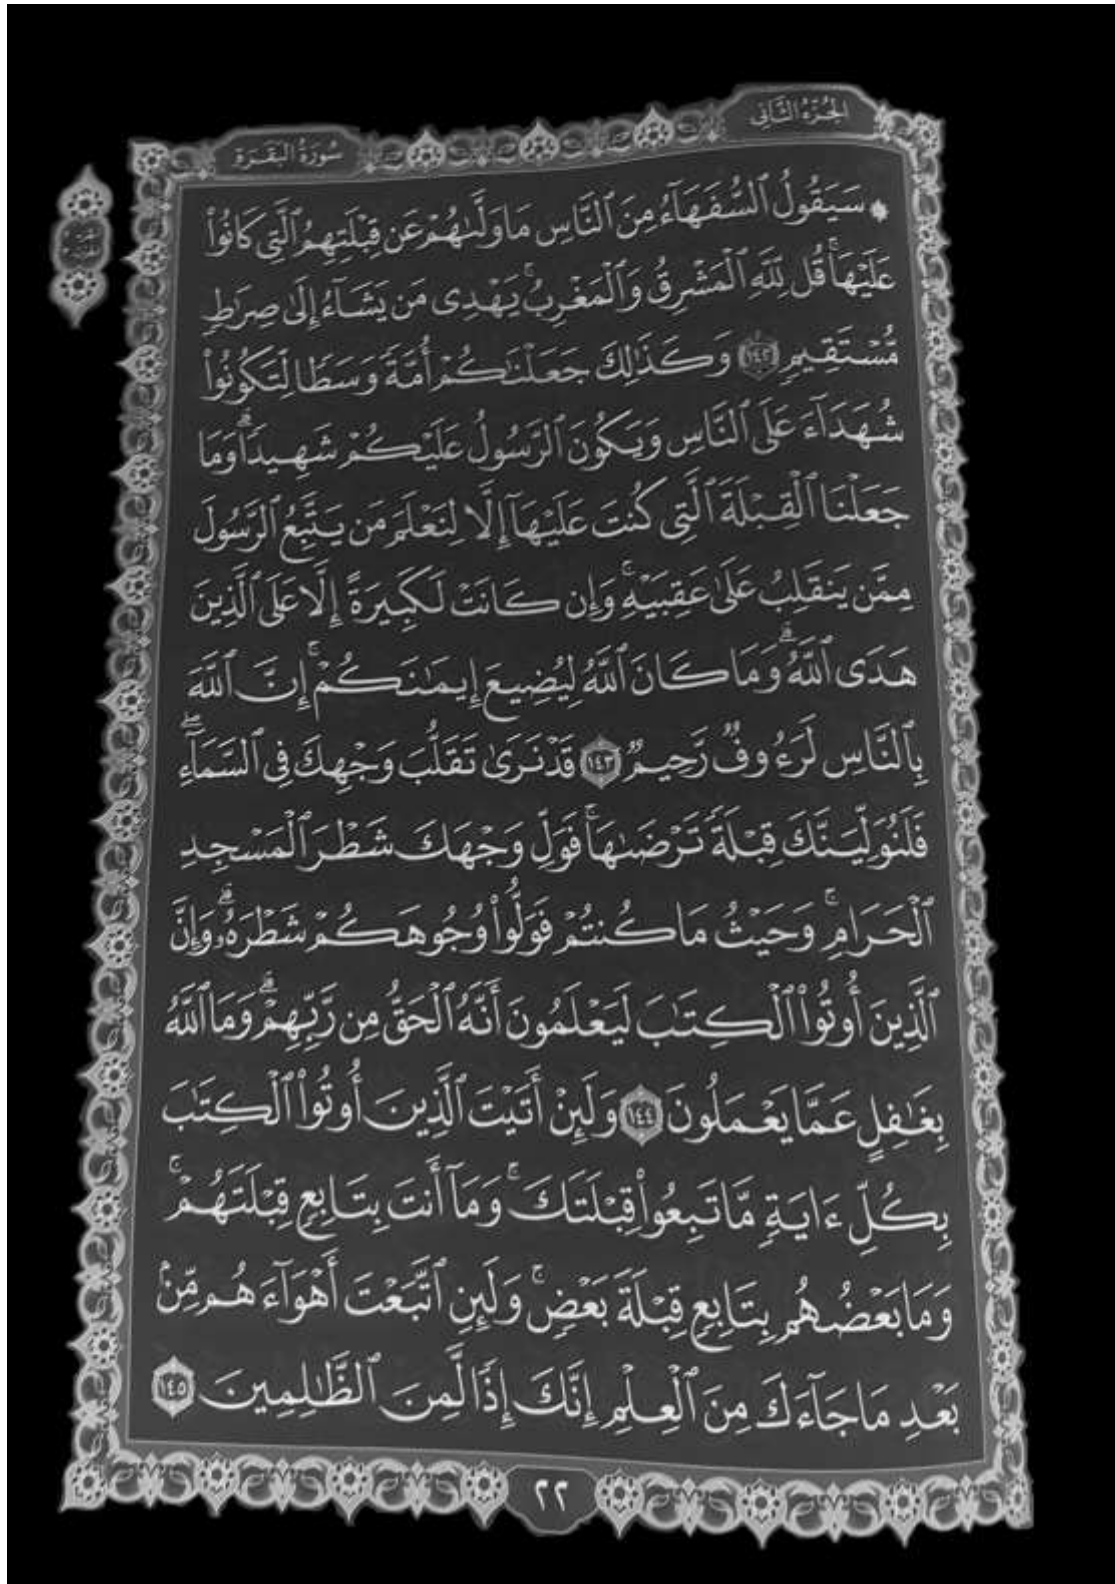 الجزء الثاني
سورة البقرة
۞ سَيَقُولُ ٱلسُّفَهَآءُ مِنَ ٱلنَّاسِ مَا وَلَّىٰهُمْ عَن قِبْلَتِهِمُ ٱلَّتِى كَانُوا۟
عَلَيْهَا ۚ قُل لِّلَّهِ ٱلْمَشْرِقُ وَٱلْمَغْرِبُ ۚ يَهْدِى مَن يَشَآءُ إِلَىٰ صِرَٰطٍ
مُّسْتَقِيمٍ ١٤٢ وَكَذَٰلِكَ جَعَلْنَٰكُمْ أُمَّةً وَسَطًا لِّتَكُونُوا۟
شُهَدَآءَ عَلَى ٱلنَّاسِ وَيَكُونَ ٱلرَّسُولُ عَلَيْكُمْ شَهِيدًا ۗ وَمَا
جَعَلْنَا ٱلْقِبْلَةَ ٱلَّتِى كُنتَ عَلَيْهَآ إِلَّا لِنَعْلَمَ مَن يَتَّبِعُ ٱلرَّسُولَ
مِمَّن يَنقَلِبُ عَلَىٰ عَقِبَيْهِ ۚ وَإِن كَانَتْ لَكَبِيرَةً إِلَّا عَلَى ٱلَّذِينَ
هَدَى ٱللَّهُ ۗ وَمَا كَانَ ٱللَّهُ لِيُضِيعَ إِيمَٰنَكُمْ ۚ إِنَّ ٱللَّهَ
بِٱلنَّاسِ لَرَءُوفٌ رَّحِيمٌ ١٤٣ قَدْ نَرَىٰ تَقَلُّبَ وَجْهِكَ فِى ٱلسَّمَآءِ ۖ
فَلَنُوَلِّيَنَّكَ قِبْلَةً تَرْضَىٰهَا ۚ فَوَلِّ وَجْهَكَ شَطْرَ ٱلْمَسْجِدِ
ٱلْحَرَامِ ۚ وَحَيْثُ مَا كُنتُمْ فَوَلُّوا۟ وُجُوهَكُمْ شَطْرَهُۥ ۗ وَإِنَّ
ٱلَّذِينَ أُوتُوا۟ ٱلْكِتَٰبَ لَيَعْلَمُونَ أَنَّهُ ٱلْحَقُّ مِن رَّبِّهِمْ ۗ وَمَا ٱللَّهُ
بِغَٰفِلٍ عَمَّا يَعْمَلُونَ ١٤٤ وَلَئِنْ أَتَيْتَ ٱلَّذِينَ أُوتُوا۟ ٱلْكِتَٰبَ
بِكُلِّ ءَايَةٍ مَّا تَبِعُوا۟ قِبْلَتَكَ ۚ وَمَآ أَنتَ بِتَابِعٍ قِبْلَتَهُمْ ۚ
وَمَا بَعْضُهُم بِتَابِعٍ قِبْلَةَ بَعْضٍ ۚ وَلَئِنِ ٱتَّبَعْتَ أَهْوَآءَهُم مِّنۢ
بَعْدِ مَا جَآءَكَ مِنَ ٱلْعِلْمِ إِنَّكَ إِذًا لَّمِنَ ٱلظَّٰلِمِينَ ١٤٥
٢٢